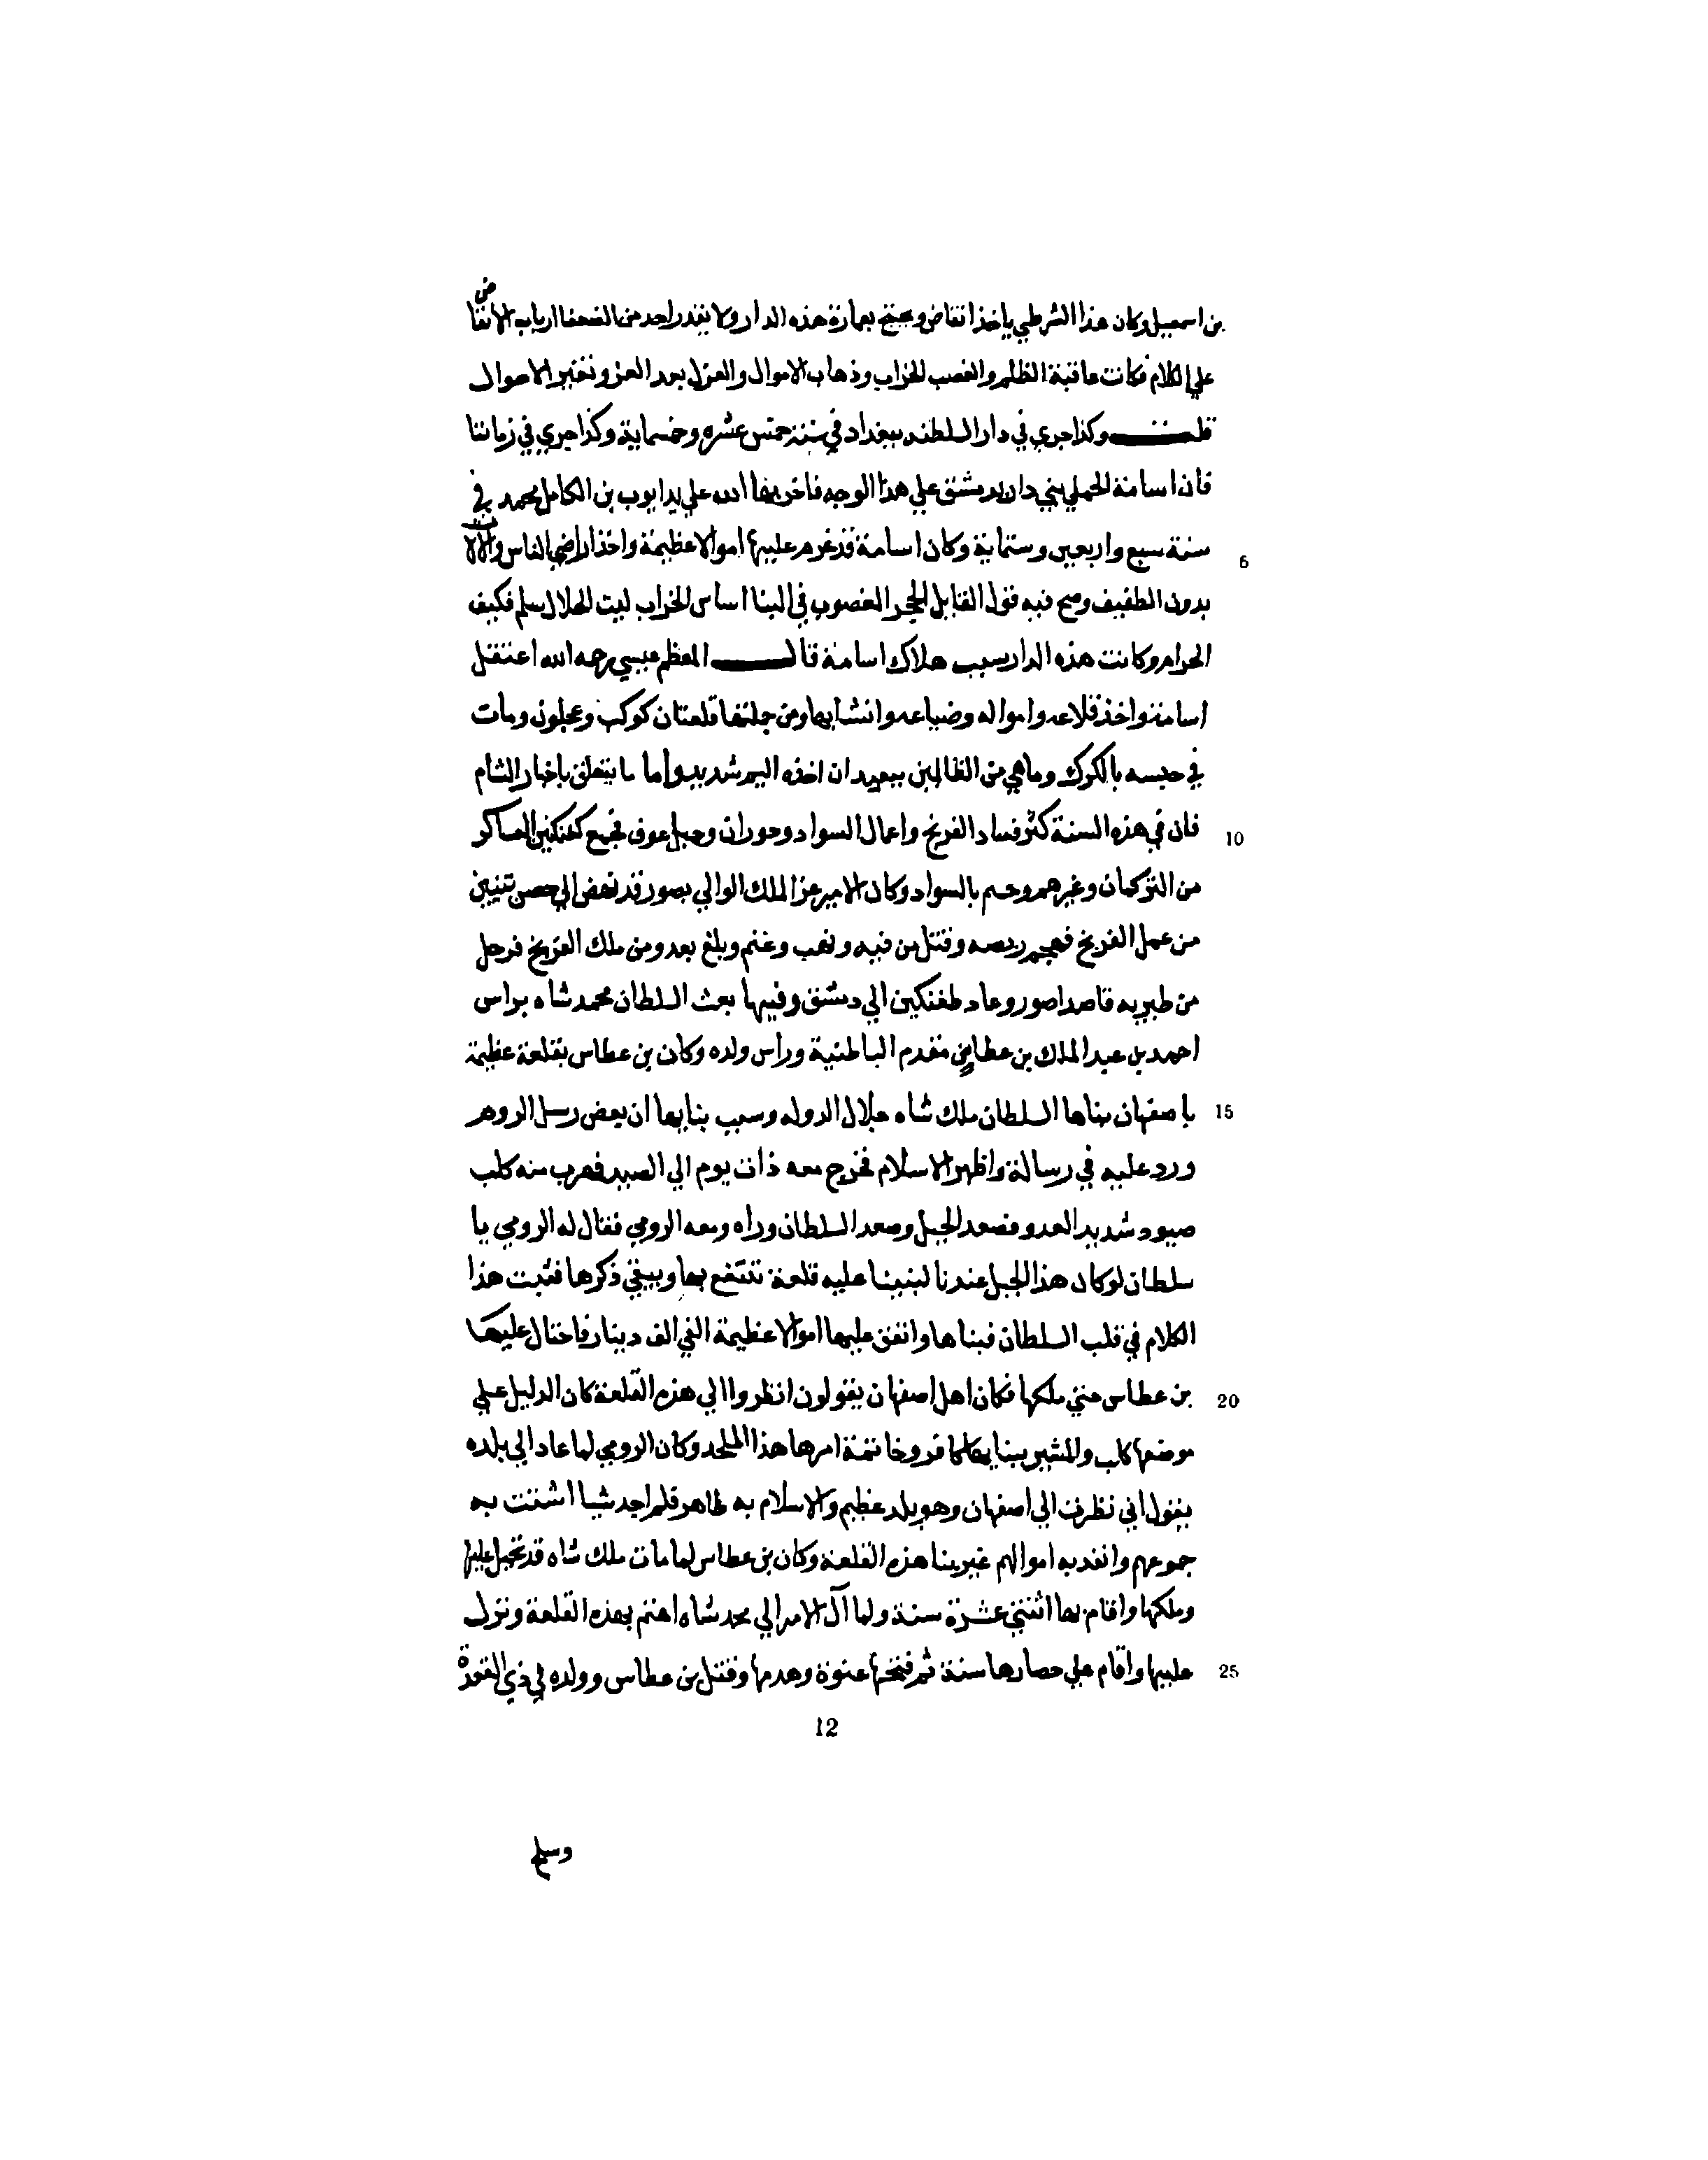 بن اسمعيل وكان هذا الشرطي ياخذ انقاض ويحتج بعمارة هذه الدار ولا يقدر احد من الضعفا ارباب الانقاض
علي الكلام فكانت عاقبة الظلم والغصب للخراب وذهاب الاموال والعزل بعد العز وتغير الاحوال
قلت وكذا جري في دار السلطنه ببغداد في سنة خمس عشره وخمسماية وكذا جري في زماننا
فان اسامة الحملي بني دارا بدمشق علي هذا الوجه فاخربها الله علي يد ايوب بن الكامل محمد في
سنة سبع واربعين وستماية وكان اسامة قد غرم عليها اموالا عظيمة واخذ اراضي الناس والالات
6
بدون الطفيف وصح فيه قول القايل الحجر المغصوب في البنا اساس الخراب ليت الحلال سلم فكيف
الحرام وكانت هذه الدار سبب هلاك اسامة قال المعظم عيسي رحمه الله اعتقل
اسامة واخذ قلاعه وامواله وضياعه وانشا بها ومن جملتها قلعتان كوكب وعجلون ومات
في حبسه بالكرك وما هي من الظالمين ببعيد ان اخذه اليم شديد واما ما يتعلق باخبار الشام
فان في هذه السنة كثر فساد الفرنج واعمال السواد وحوران وجبل عوف فجمع طغتكين العساكر
10
من التركمان وغيرهم وخيم بالسواد وكان الامير عز الملك الوالي بصور قد نهض الي حصن تبنين
من عمل الفرنج فهجم ربضه وقتل من فيه ونهب وغنم وبلغ بعدومن ملك الفرنج فرحل
من طبريه قاصدا صور وعاد طغتكين الي دمشق وفيها بعث السلطان محمد شاه براس
احمد بن عبد الملك بن عطاس مقدم الباطنية وراس ولده وكان بن عطاس بقلعة عظيمة
باصفهان بناها السلطان ملك شاه جلال الدوله وسبب بنايها ان بعض رسل الروم
15
ورد عليه في رسالة واظهر الاسلام فخرج معه ذات يوم الي الصيد فهرب منه كلب
صيود شديد العدو فصعد الجبل وصعد السلطان وراه ومعه الرومي فقال له الرومي يا
سلطان لو كان هذا الجبل عندنا لبنينا عليه قلعة ننتفع بها ويبقي ذكرها فثبت هذا
الكلام في قلب السلطان فبناها وانفق عليها اموالا عظيمة الفي الف دينار فاحتال عليها
بن عطاس حتي ملكها فكان اهل اصفهان يقولون انظروا الي هذه القلعة كان الدليل علي
20
موضعها كلب والمشير ببنايها كافر وخاتمة امرها هذا الملحد وكان الرومي لما عاد الي بلده
يقول اني نظرت الي اصفهان وهو بلد عظيم والاسلام به ظاهر فلم اجد شيا اشتت به
جموعهم وانفد به اموالهم غير بنا هذه القلعة وكان بن عطاس لما مات ملك شاه قد تحيل عليها
وملكها واقام بها اثنتي عشرة سنة ولما آل الامر الي محمد شاه اهتم بهذه القلعة ونزل
عليها واقام علي حصارها سنة ثم فتحها عنوة وهدمها وقتل بن عطاس وولده في ذي القعدة
25
12
وسلم